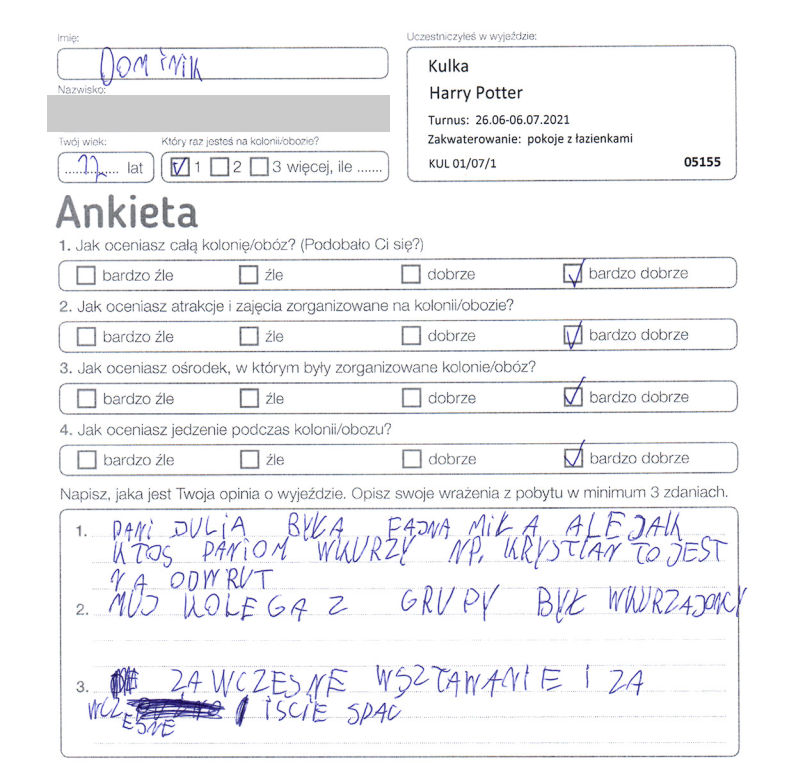 Imię:
DOMINIK
Nazwisko:
Twój wiek:
lat
Który raz jesteś na kolonii/obozie?
1 2 3 więcej, ile .......
Uczestniczyłeś w wyjeździe:
Kulka
Harry Potter
Turnus: 26.06-06.07.2021
Zakwaterowanie: pokoje z łazienkami
KUL 01/07/1 05155
Ankieta
1. Jak oceniasz całą kolonię/obóz? (Podobało Ci się?)
bardzo źle źle dobrze bardzo dobrze
2. Jak oceniasz atrakcje i zajęcia zorganizowane na kolonii/obozie?
bardzo źle źle dobrze bardzo dobrze
3. Jak oceniasz ośrodek, w którym były zorganizowane kolonie/obóz?
bardzo źle źle dobrze bardzo dobrze
4. Jak oceniasz jedzenie podczas kolonii/obozu?
bardzo źle źle dobrze bardzo dobrze
Napisz, jaka jest Twoja opinia o wyjeździe. Opisz swoje wrażenia z pobytu w minimum 3 zdaniach.
1. PANI JULIA BYŁA FAJNA MIŁA ALE JAK
KTOŚ PANIOM WKURZY NP. KRYSTIAN TO JEST
NA ODWRUT
2. MUJ KOLEGA Z GRUPY BYŁ WKURZAJONCY
3. ZA WCZESNE WSZTAWANIE I ZA
WCZESNE IŚCIE SPAC